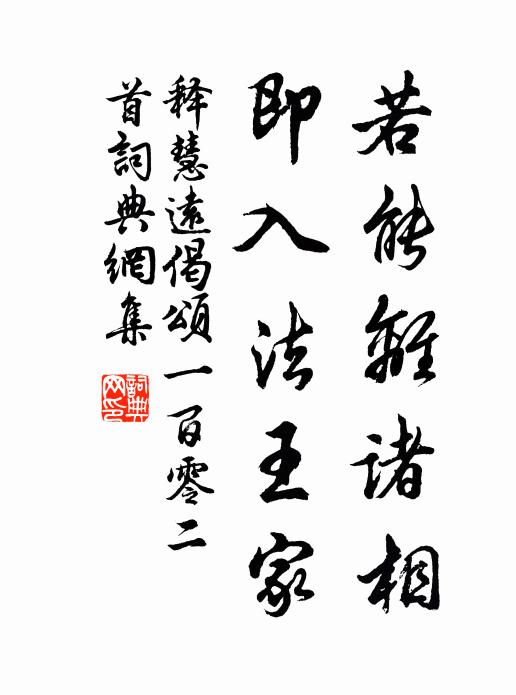 若能離諸相
即入法王家
释慧遠偈頌一百零二
首詞典網集
詞典
网印